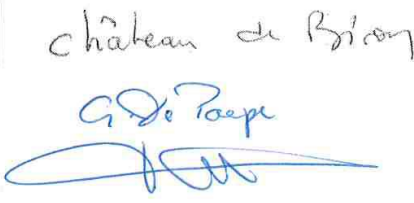 château de Biron
G. De Paepe